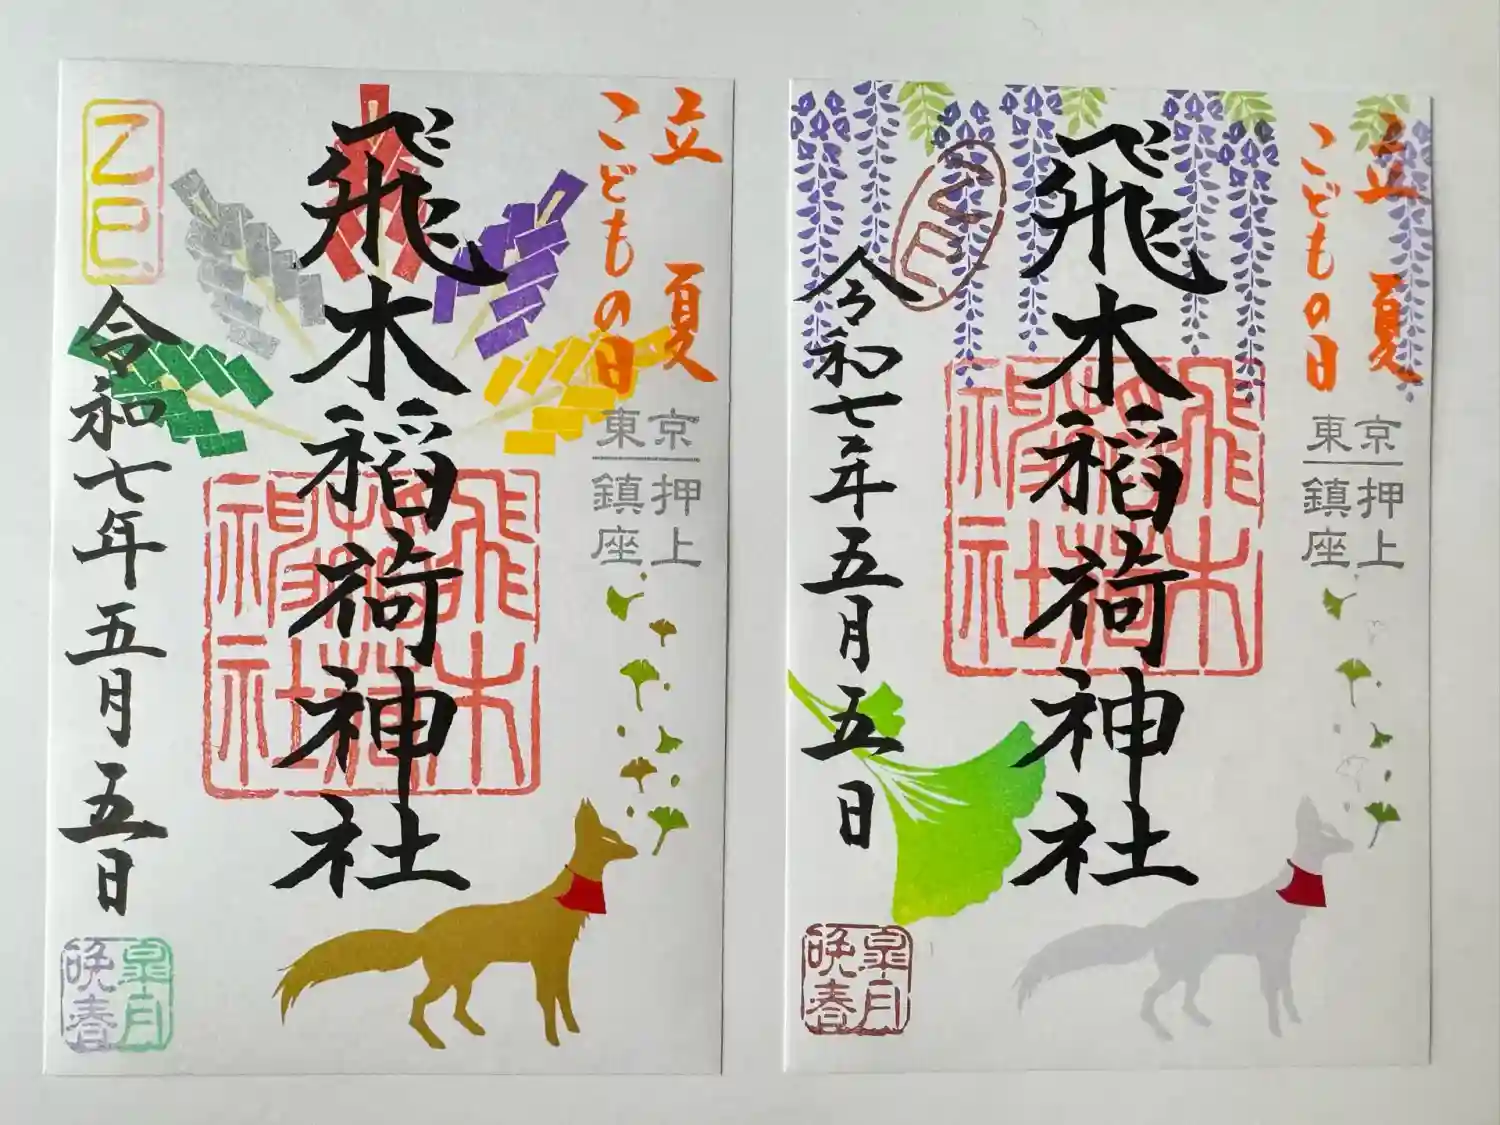 立夏
こどもの日
東京
押上
鎮座
飛木稲荷神社
飛木稲荷神社
乙巳
令和七年五月五日
皐月
晩春
立夏
こどもの日
東京
押上
鎮座
飛木稲荷神社
飛木稲荷神社
乙巳
令和七年五月五日
皐月
晩春